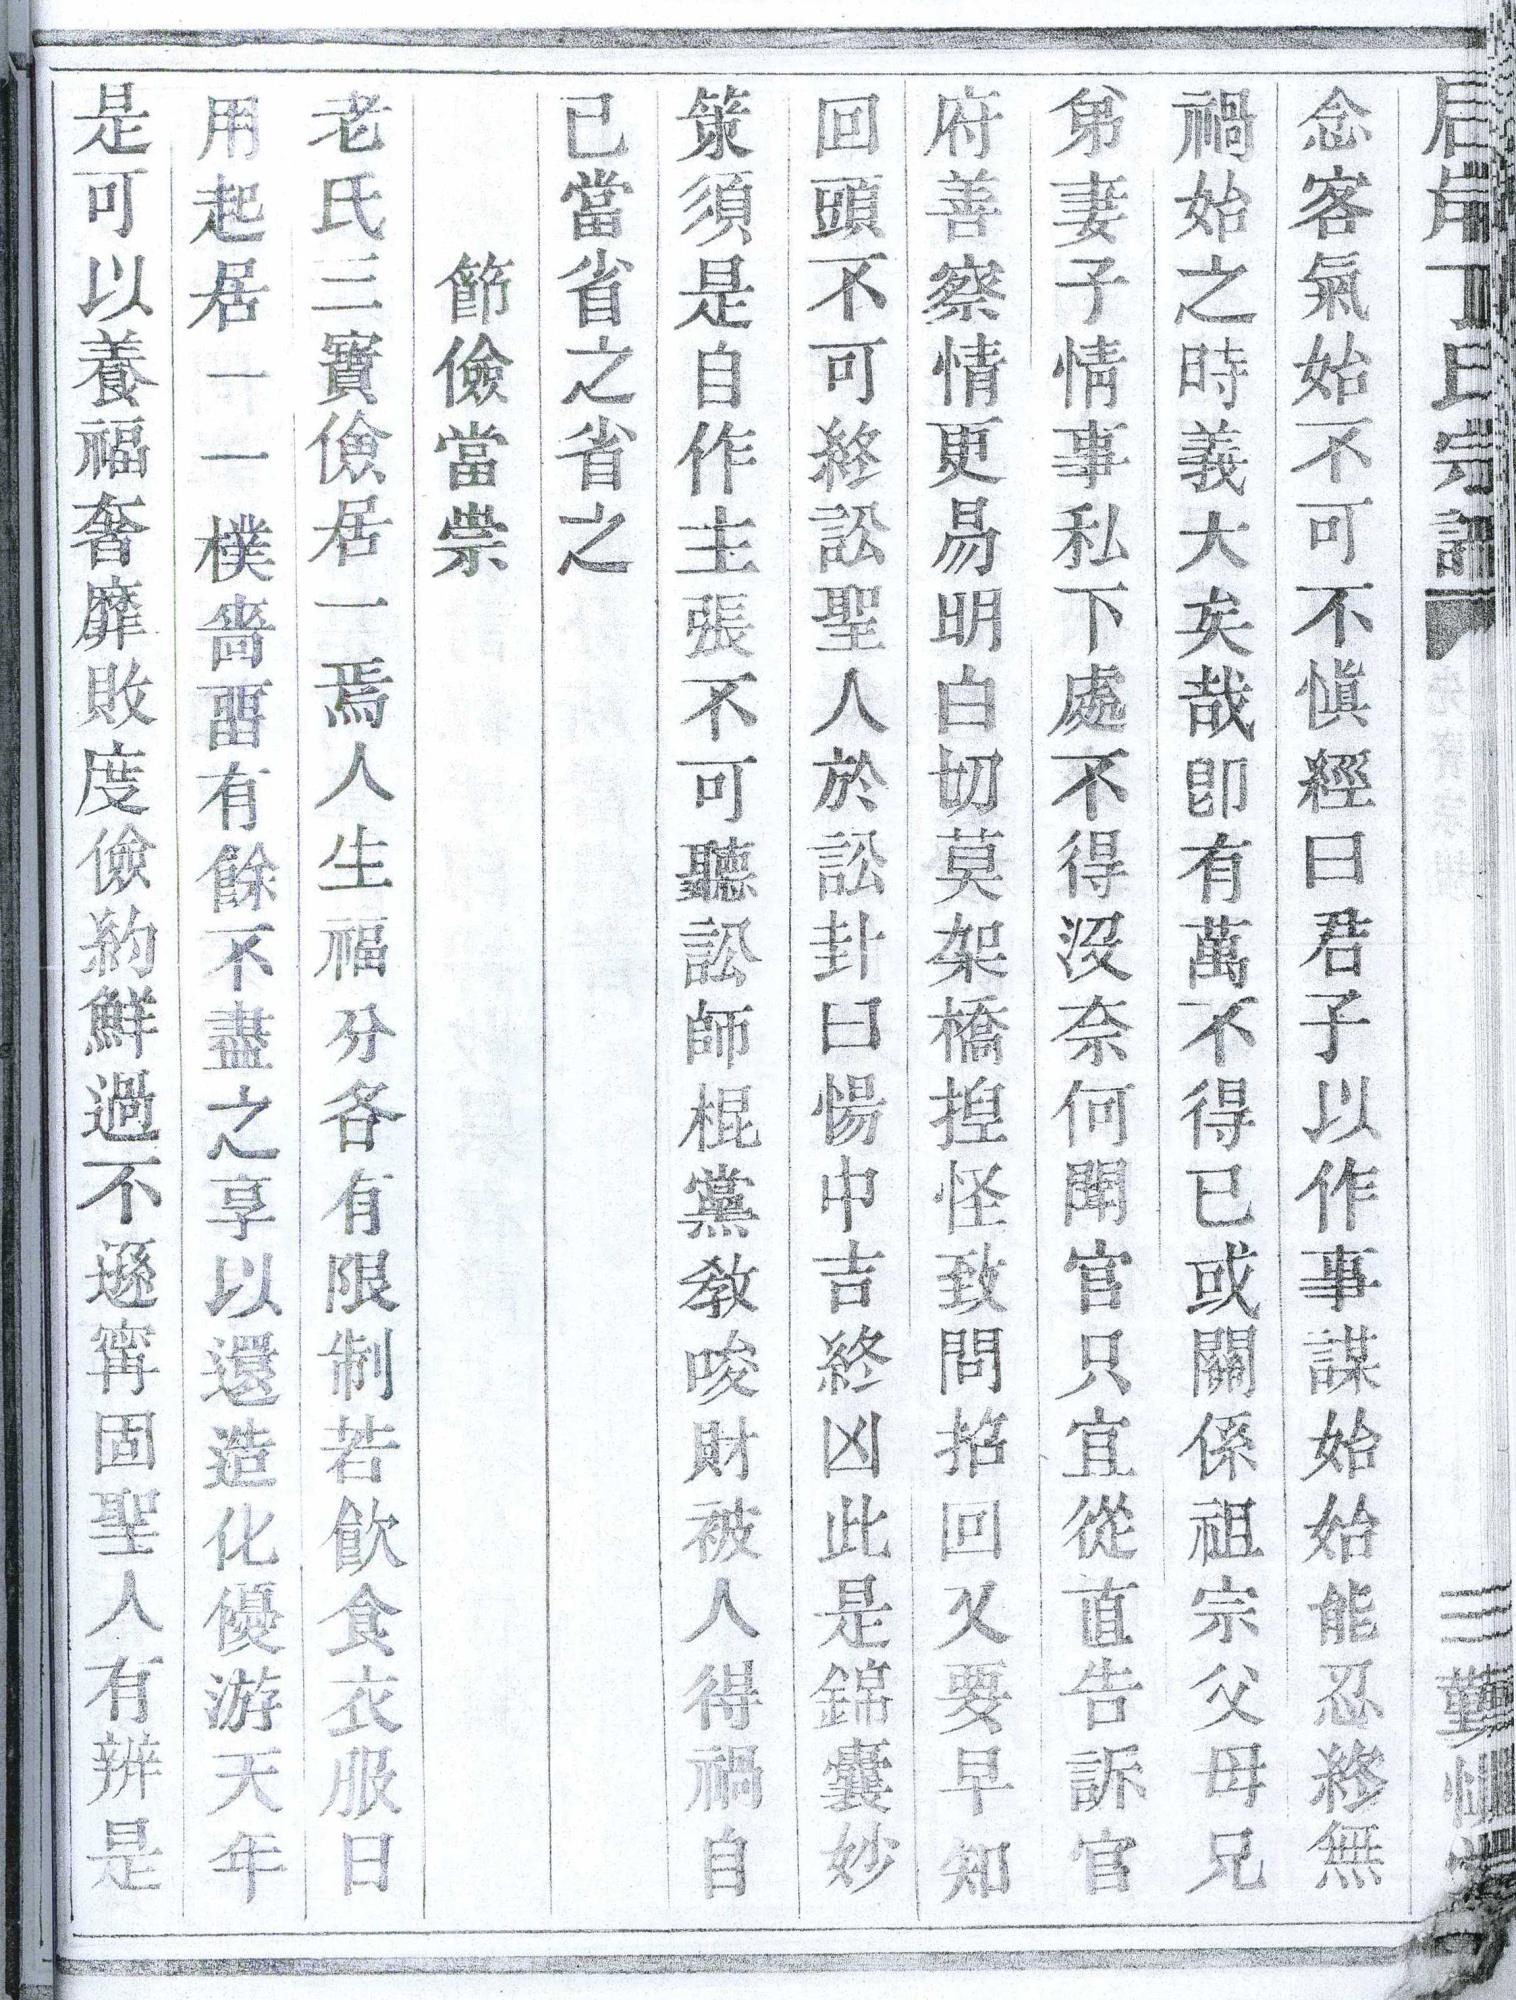 丁氏宗譜
念客氣始不可不慎經曰君子以作事謀始始能忍終無
禍始之時義大矣哉卽有萬不得已或關係祖宗父母兄
弟妻子情事私下處不得沒奈何鬧官只宜從直告訴官
府善察情更易明白切莫架橋揑怪致問招回又要早知
回頭不可終訟聖人於訟卦曰惕中吉終凶此是錦囊妙
策須是自作主張不可聽訟師棍黨教唆財被人得禍自
已當省之省之
節儉當崇
老氏三寶儉居一焉人生福分各有限制若飮食衣服日
用起居一一樸嗇畱有餘不盡之享以還造化優游天年
是可以養福奢靡敗度儉約鮮過不遜甯固聖人有辨是